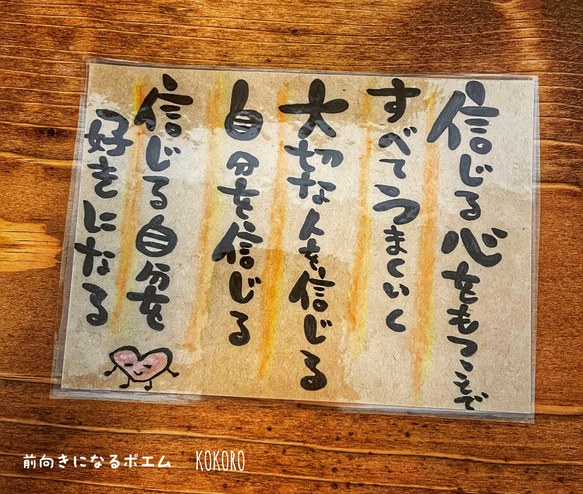 信じる心をもつことで
すべてうまくいく
大切な人を信じる
自分を信じる
信じる自分を
好きになる
前向きになるポエム KOKORO